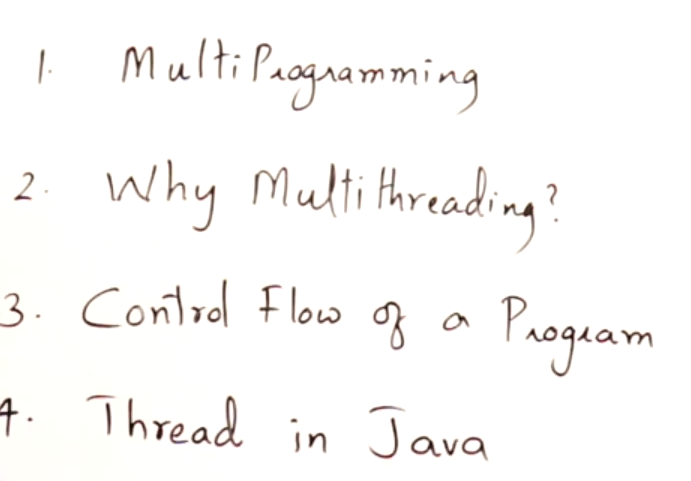 1. MultiProgramming
2. Why Multithreading?
3. Control Flow of a Program
4. Thread in Java